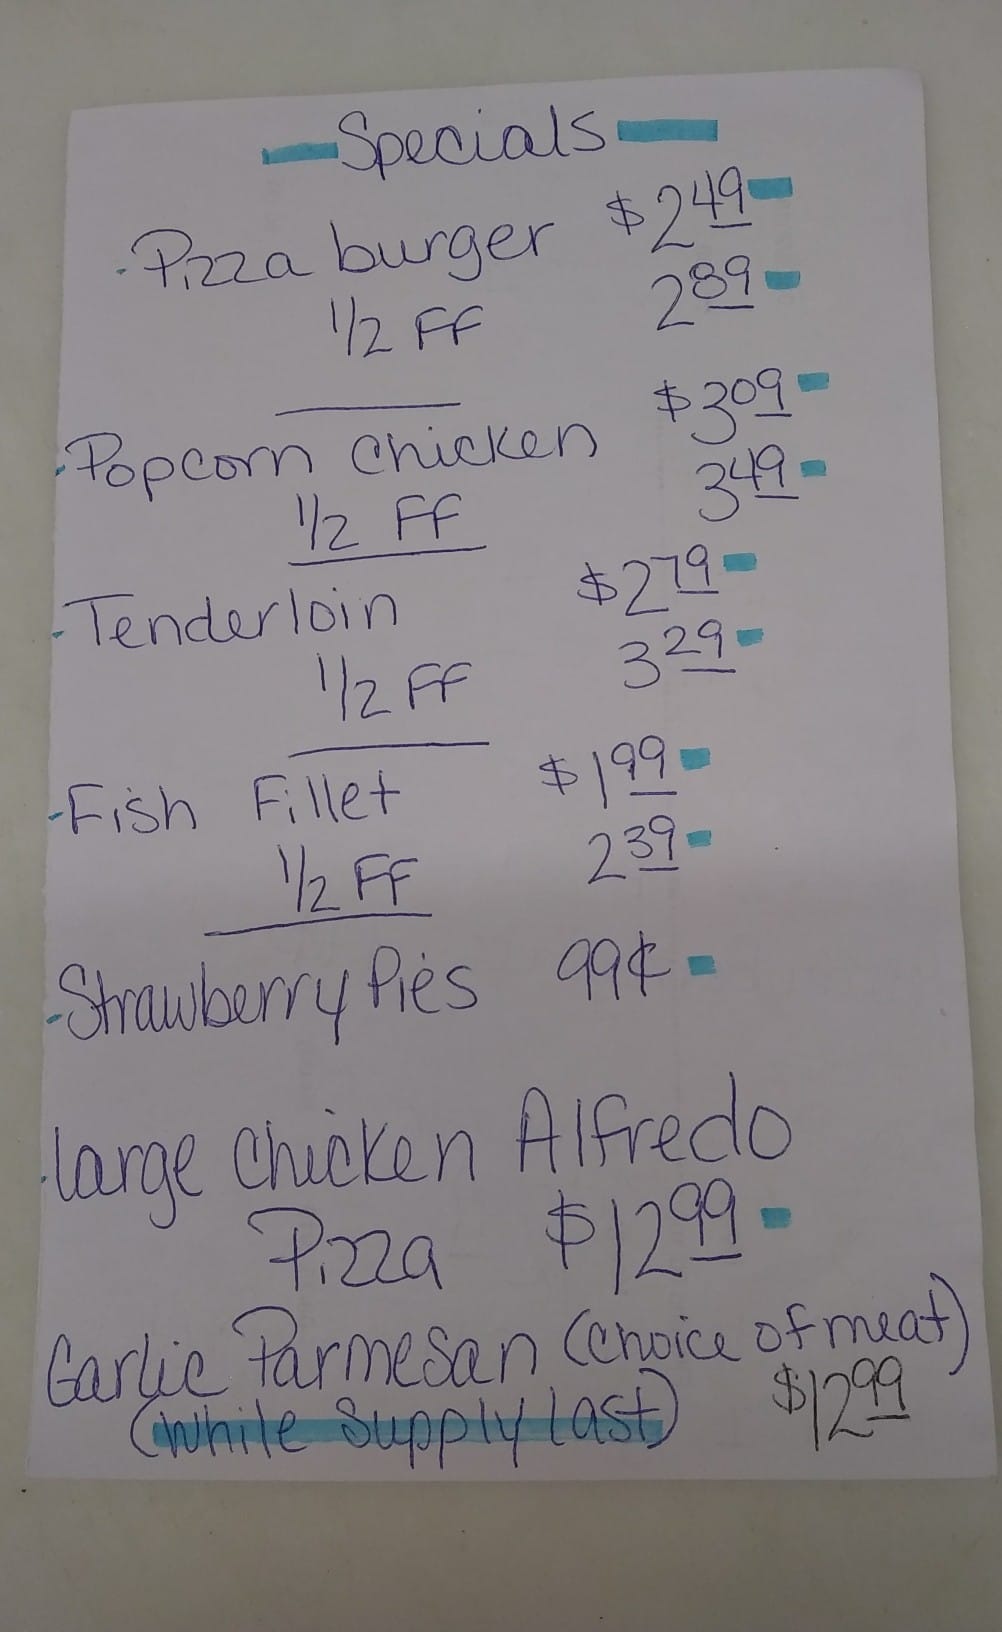 Specials
Pizza burger $2 49
1/2 FF 2 89
Popcorn Chicken $3 09
1/2 FF 3 49
Tenderloin $2 79
1/2 FF 3 29
Fish Fillet $1 99
1/2 FF 2 39
Strawberry Pies 99¢
large Chicken Alfredo
Pizza $12 99
Garlic Parmesan (choice of meat)
(while Supply last) $12 99